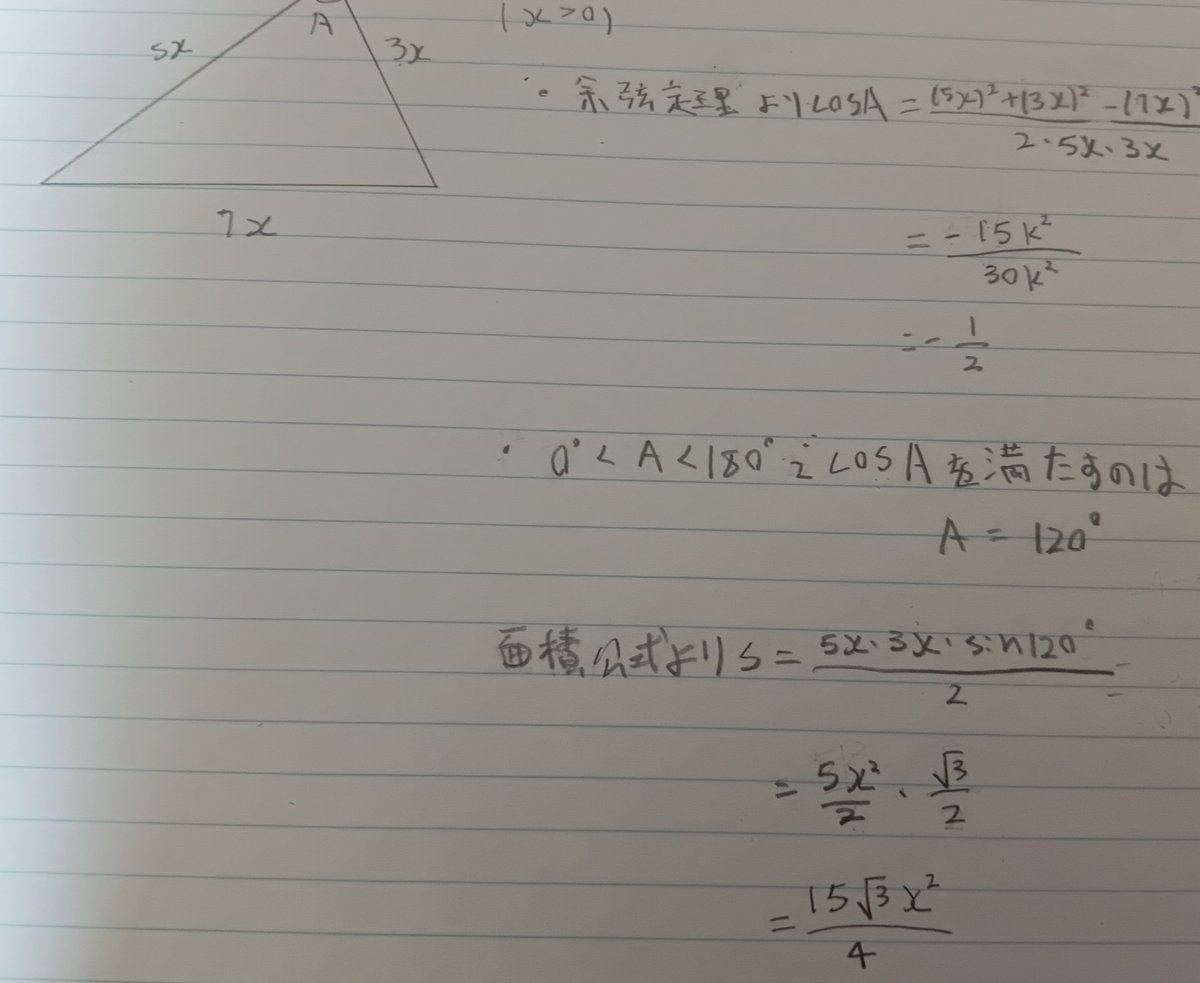 A
5x
3x
7x
(x>0)
・余弦定理よりcosA = \frac{(5x)^2+(3x)^2-(7x)^2}{2・5x・3x}
= \frac{-15k^2}{30k^2}
= -\frac{1}{2}
・0°<A<180°で cosAを満たすのは
A = 120°
面積公式より S = \frac{5x・3x・sin120°}{2}
= \frac{5x^2}{2}・\frac{√3}{2}
= \frac{15√3x^2}{4}